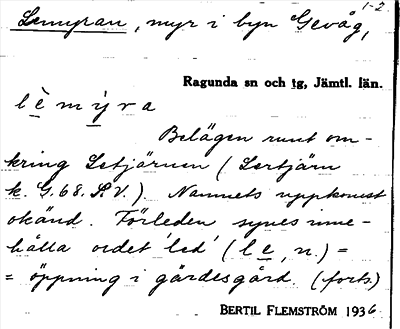 1-2
Lemyran, myr i byn Gevåg,
Ragunda sn och tg, Jämtl. län.
l è m y r a
Belägen runt om-
kring Letjärnen (Lertjärn
k. G. 68. S.V.). Namnets uppkomst
okänd. Förleden synes inne-
hålla ordet 'led' (l e, n.) =
= öppning i gärdesgård. (forts.)
BERTIL FLEMSTRÖM 1936.